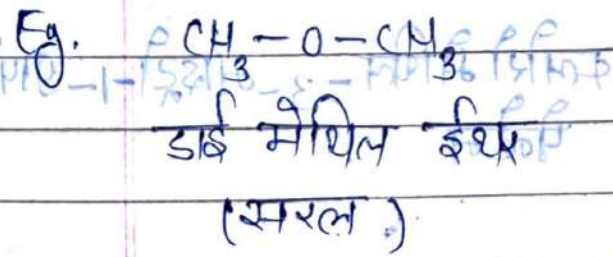 Eg. CH₃-O-CH₃
डाई मेथिल ईथर
(सरल)